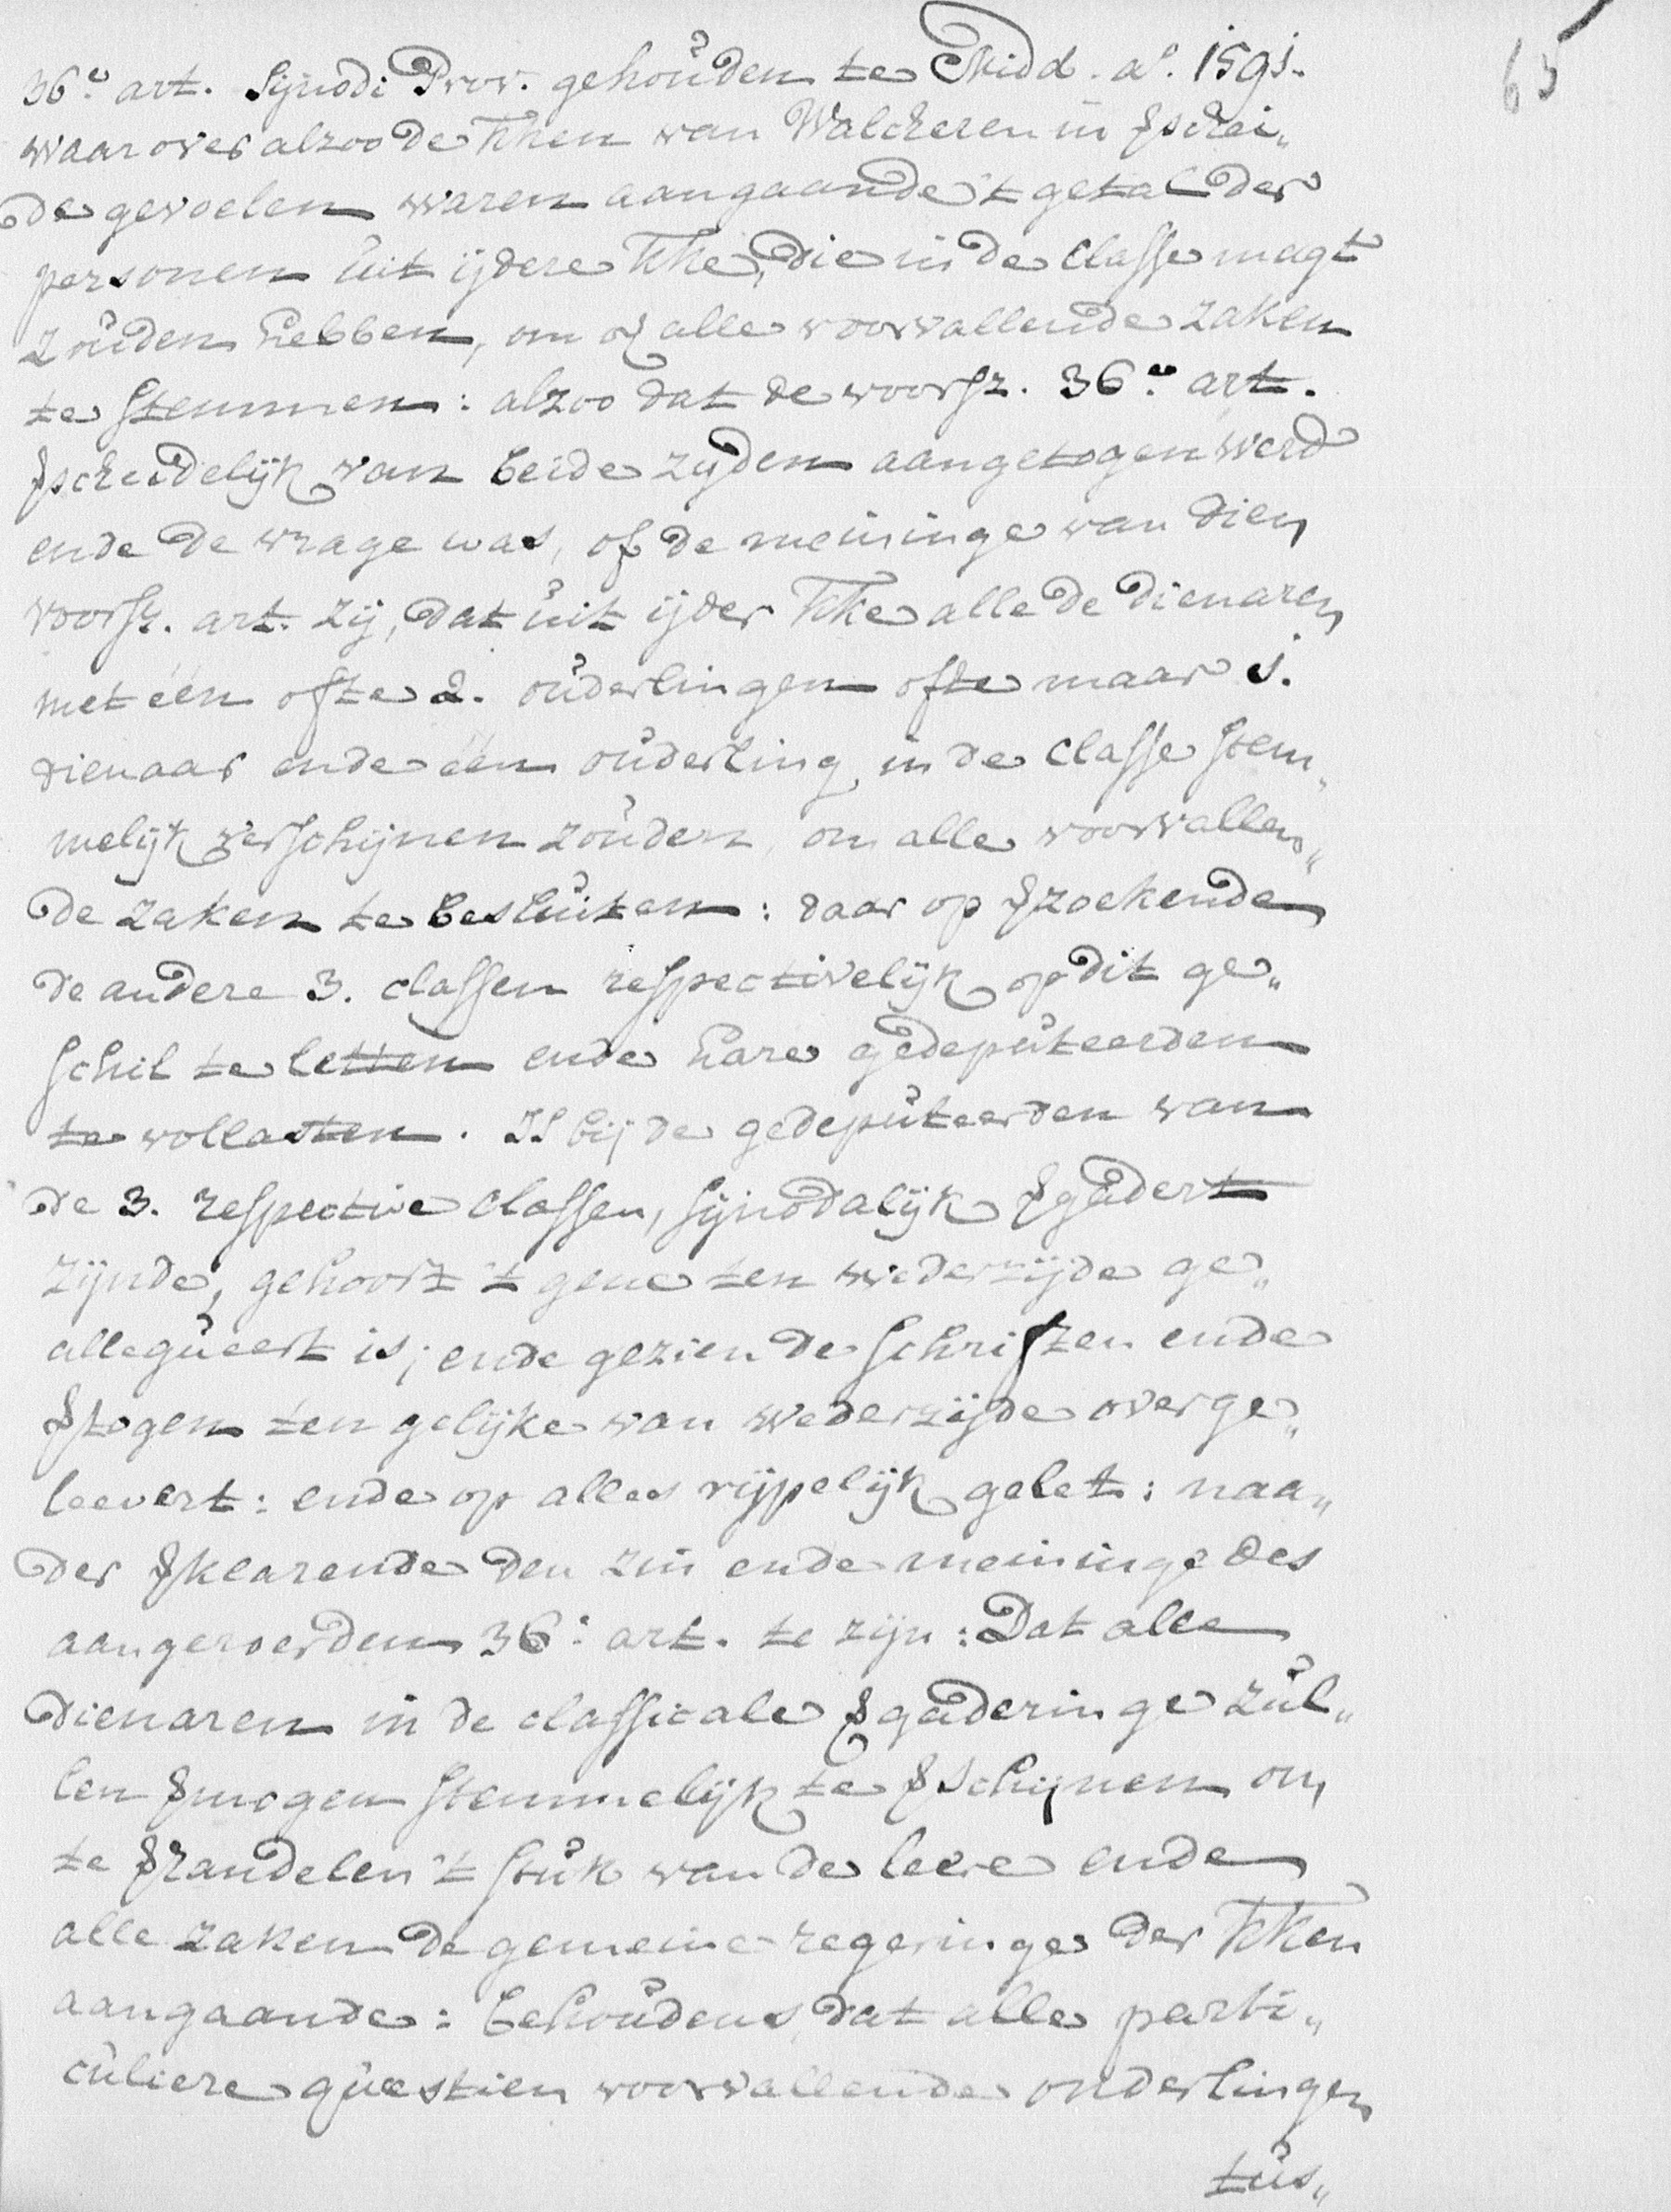 65
36.e art. Synodi Prov. gehouden te Midd. a.o 1591.
waar over alzoo de kken van Walcheren in vschei„
de gevoelen waren aangaande 't getal der
personen uit ijdere kke, die in de classe magt
zouden hebben, om op alle voorvallende zaken
te stemmen: alzoo dat de voorsz. 36.e art.
vscheidelijk van beide zijden aangetogen werd
ende de vrage was, of de meininge van dien
voorsz. art. zij, dat uit ijder kke alle de dienaren
met één ofte 2. ouderlingen ofte maar 1.
dienaar ende één ouderling, in de classe stem„
melijk verschijnen zouden, om alle voorvallen„
de zaken te besluiten: daar op vzoekende
de andere 3. classen respectivelijk op dit ge„
schil te letten ende hare gedeputeerden
te vollasten. Is bij de gedeputeerden van
de 3. respective classen, synodalijk vgadert
zijnde, gehoort 't gene ten wederzijde ge„
allegueert is; ende gezien de schriften ende
vtogen ten gelijke van wederzijde overge„
leevert: ende op alles rijpelijk gelet: naa„
der vklarende den zin ende meininge des
aangeroerden 36.e art. te zijn: Dat alle
dienaren in de classicale vgaderinge zul„
len vmogen stemmelijk te vschijnen om
te vhandelen 't stuk van de leere ende
alle zaken de gemeine regeringe der kken
aangaande: behoudens, dat alle parti„
culiere questien voorvallende onderlingen
tus„